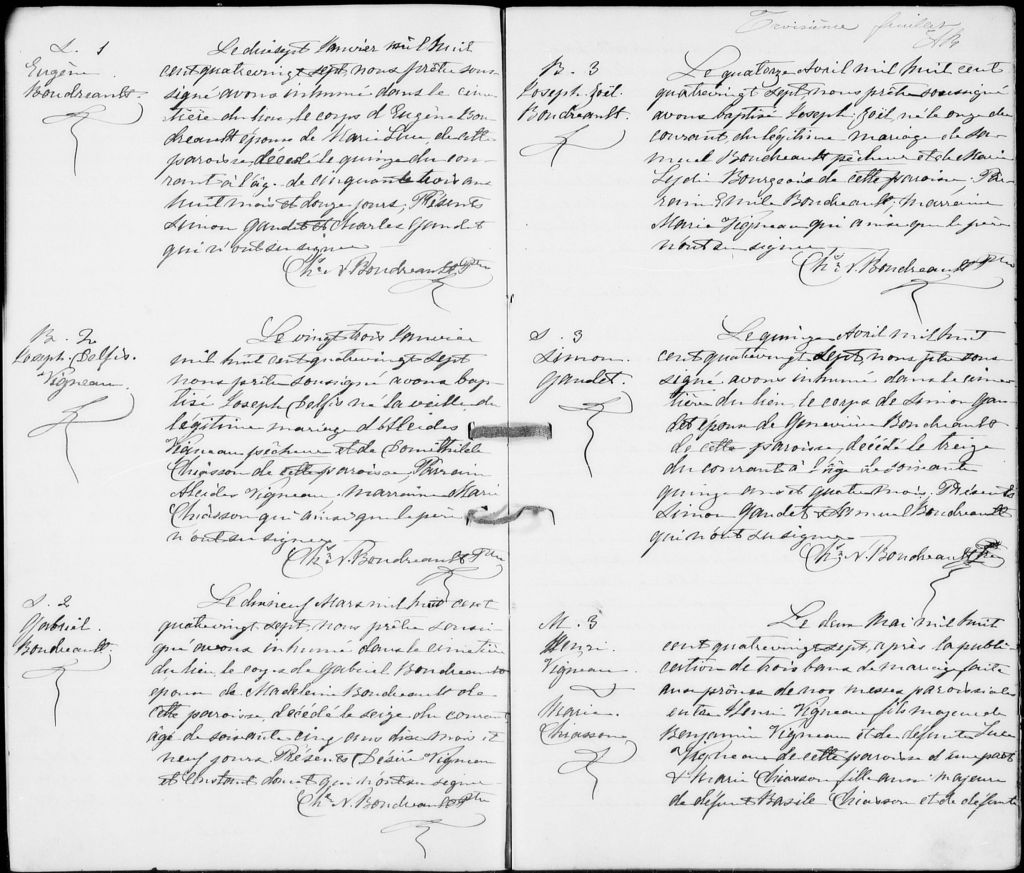 S. 1
Eugène
Boudreault.
Le dix sept Janvier mil huit
cent quatrevingt sept, nous prêtre sous-
signé avons inhumé dans le cime-
tière du lieu, le corps d'Eugène Bou-
dreault époux de Marie Luce de cette
paroisse, décédé le quinze du cou-
rant à l'âge de cinquante trois ans
huit mois et douze jours, Présents
Simon Gaudet et Charles Gaudet
qui n'ont su signer
Chs. N. Boudreault Ptre
B. 2
Joseph Delfis.
Vigneau.
Le vingt trois Janvier
mil huit cent quatrevingt sept
nous prêtre soussigné avons bap-
tisé Joseph Delfis né la veille du
légitime mariage d'Alcides
Vigneau pêcheur et de Domithilde
Chiasson de cette paroisse, Parrain
Alcides Vigneau, marraine Marie
Chiasson qui ainsi que le père
n'ont su signer
Chs. N. Boudreault Ptre
S. 2
Gabriel.
Boudreault
Le dix neuf Mars mil huit cent
quatrevingt sept, nous prêtre soussi-
gné avons inhumé dans le cimetière
du lieu, le corps de Gabriel Boudreault
époux de Madeleine Boudreault de
cette paroisse, décédé le seize du courant
agé de soixante cinq ans dix mois et
neuf jours Présents Désiré Vigneau
et Constant qui n'ont su signer
Chs. N. Boudreault Ptre
Troisième feuillet
B. 3
Joseph. Zoël.
Boudreault.
Le quatorze Avril mil huit cent
quatrevingt sept nous prêtre soussigné
avons baptisé Joseph Zoël, né le onze du
courant, du légitime mariage de Sa-
muel Boudreault pêcheur et de Marie
Lydie Bourgeois de cette paroisse. Par-
rain Emile Boudreault, marraine
Marie Vigneau qui ainsi que le père
n'ont su signer
Chs. N. Boudreault Ptre
S. 3
Simon.
Gaudet.
Le quinze Avril mil huit
cent quatrevingt sept, nous prêtre sous-
signé avons inhumé dans le cime-
tière du lieu, le corps de Simon Gau-
det époux de Geneviève Boudreault
de cette paroisse, décédé le treize
du courant à l'âge de soixante
quinze ans et quatre mois. Présents
Simon Gaudet & Samuel Boudreault
qui n'ont su signer
Chs. N. Boudreault Ptre
M. 3
Henri.
Vigneau.
&
Marie.
Chiasson
Le deux Mai mil huit
cent quatrevingt sept, après la publi-
cation de trois bans de mariage faite
aux prônes de nos messes paroissiales
entre Henri Vigneau fils majeur de
Benjamin Vigneau et de défunte Luce
Vigneau de cette paroisse d'une part
& Marie Chiasson fille aussi majeure
de défunt Basile Chiasson et de défunte